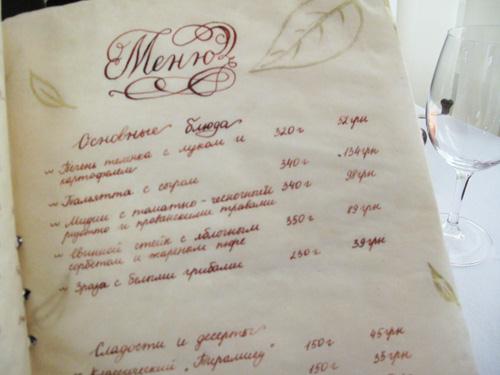 Меню
Основные блюда
~ Печень теленка с луком и 320 г 52 грн
картофелем
~ с сыром 340 г 134 грн
~ Мидии с томатно-чесночным 340 г 98 грн
и прованскими травами
~ Свинной стейк с яблочным 350 г 89 грн
сорбетом и жареном
~ Зраза с белыми грибами 250 г 39 грн
Сладости и десерты
Классический „Тирамису" 150 г 45 грн
150 г 35 грн